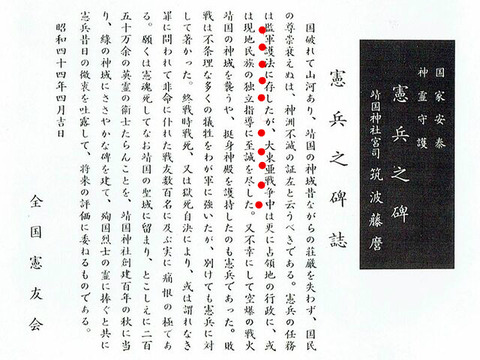 国家安泰
神霊守護
憲兵之碑
靖国神社宮司 筑波藤麿
憲兵之碑誌
国破れて山河あり、靖国の神域昔ながらの荘厳を失わず、国民
の尊崇衰えぬは、神洲不滅の証左と云うべきである。憲兵の任務
は監軍護法に存したが、大東亜戦争中は更に占領地の行政に、或
は現地民族の独立指導に至誠を尽した。又不幸にして空爆の戦火
靖国の神域を襲うや、挺身神殿を護持したのも憲兵であった。敗
戦は不条理な多くの犠牲をわが軍に強いたが、別けても憲兵に対
して著かった。終戦時戦死、又は獄死自決により、或は謂れなき
罪に問われて非命に仆れた戦友数百名に及ぶ実に痛恨の極であ
る。願くは憲魂死してなお靖国の聖域に留まり、とこしえに二百
五十万余の英霊の衛士たらんことを、靖国神社創建百年の秋に当
り、縁の神域にささやかな碑を建て、殉国烈士の霊に捧ぐと共に
憲兵昔日の微衷を吐露して、将来の評価に委ねるものである。
昭和四十四年四月吉日
全国憲友会